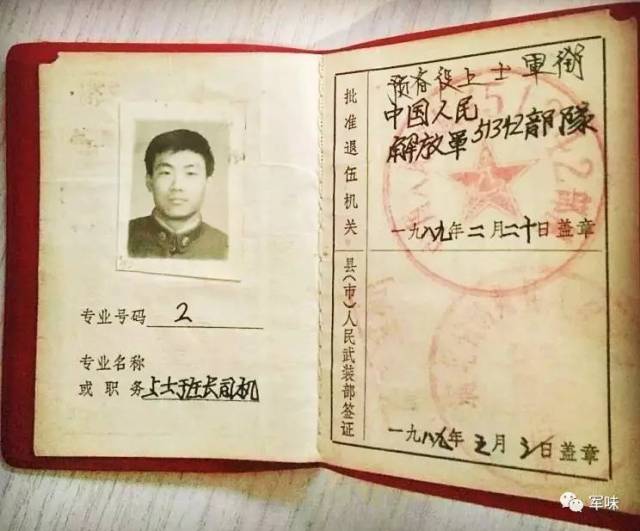 专业号码 2
专业名称
或职务 上士班长司机
批准退伍机关
预备役上士軍衔
中国人民
解放軍51342部隊
一九八九年 二月二十日盖章
县(市)人民武装部签证
一九八九年 三月 日盖章
军味